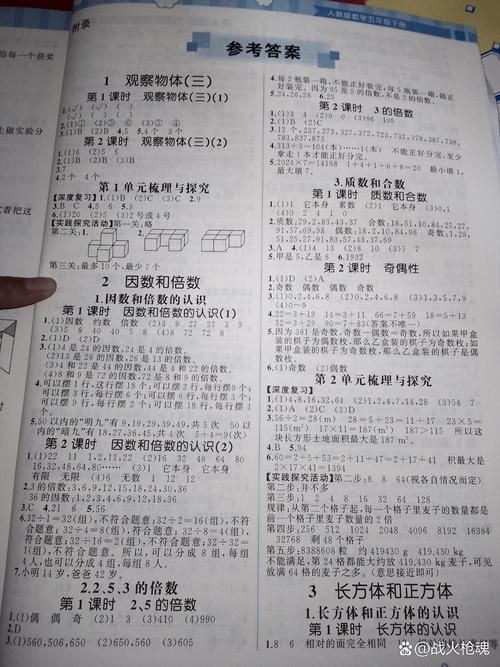 人教版数学五年级下册
附录
参考答案
1 观察物体(三)
第1课时 观察物体(三)(1)
第2课时 观察物体(三)(2)
1.(1)6 (2)5 6
2.(1)B (2)B (3)B
3.7
4.2个 4个
第1单元梳理与探究
【深度复习】1.(1)B (2)C (3)C 2.B
3.C 4.5 6 5.3
6.(1)20 (5) (3)2号或4号
【实践探究活动】第一关:略
第二关:
第三关:最多10个,最少7个
2 因数和倍数
1.因数和倍数的认识
第1课时 因数和倍数的认识(1)
1.(1)因数 约数 倍数 (2)3 9 27 27 3 9
2.(1)D (2)D
3.(1)4是24的因数,24是4的倍数。
(2)13是26的因数,26是13的倍数。
(3)4和22是44的因数,44是4和22的倍数。
(4)8和9是72的因数,72是8和9的倍数。
4.可以摆1行,这行摆18个;可以摆2行,每行摆9个;
可以摆3行,每行摆6个;可以摆6行,每行摆3个;
可以摆9行,每行摆2个;可以摆18行,每行摆1
个。
5.50以内的“明九”有9,19,29,39,49,共5次 50以
内的“暗九”有18,27,36,45,共4次 5+4=9(次)
第2课时 因数和倍数的认识(2)
1.(1)22 11 1,2,11,22 (2)16 32 48 64 80
16,32,48,64,80…… (3)1 它本身 它本身
有限 无限 (4)6 无数 1 12 12
2.3的倍数:3,6,9,12,15,18,24,30,36
36的因数:1,2,3,4,6,9,12,18,36
3.C 4.21 6 5.56
6.32÷1=32(组),不符合题意;32÷2=16(组),不符
合题意;32÷4=8(组),符合题意;32÷8=4(组),
符合题意;32÷16=2(组),不符合题意;32÷32=
1(组),不符合题意。所以,可以分成8组,每组
4人,也可以分成4组,每组8人。
7.小明14岁,爸爸42岁。
2.2、5、3的倍数
第1课时 2、5的倍数
1.(1)偶 偶 奇 (2)1 0 (3)2 (4)410 990
2.D
3.(1)560,506,650 (2)630,650,605 (3)560,650
4.每2瓶装一箱,不能正好装完,每5瓶装一箱,能正
好装完。因为95是5的倍数,不是2的倍数。
5.24,26,28 6.25
第2课时 3的倍数
2.(1)C (2)C
3.12个,237,273,327,372,723,732,378,387,738,
783,837,873
4.313÷3=104(本)……1(本) 不能正好分完,至少
拿走1本才能正好分完。
最大填7。
3.质数和合数
第1课时 质数和合数
(4)0 2 4 1 0
91,25,27,91,83,57,43,37,69
5.甲是5,乙是6 6.1932
第2课时 奇偶性
1.(1)D (2)A
2.奇数 偶数 偶数 奇数
4.22=3+19 14=3+11 66=7+59 18=5+13
32=3+29 90=7+83(答案不唯一)
5.因为361是奇数,奇数-偶数=奇数,所以如果甲盒
装的棋子为偶数枚,那么乙盒装的棋子为奇数枚;如
果甲盒装的棋子为奇数枚,那么乙盒装的棋子是偶
数枚。
6.(1)奇数 (2)偶数
第2单元梳理与探究
【深度复习】
1.(1)4,8,16,32,64 (2)1,2,4,7,14,28 (3)54 7
2.(1)A (2)C (3)D
3.56÷2=28(m) 28=5+23=11+17 23×5=
115(m²) 17×11=187(m²) 187>115 所以这
块长方形土地面积最大是187 m²。
4.B 5.94
6.60=2+5+53=2+11+47=2+17+41 积最大是
2×17×41=1394
【实践探究活动】第二步:8 8 64(视各自情况而定)
第二步:并不多
第三步:1 2 4 8 16 32 64 128
规律:从第二个格子起,每一个格子里麦子的数量都是
前一个格子里麦子数量的2倍
第四步:256 512 1024 2048 4096 8192 16384
32768 剩48个格子
第五步:8388608粒 约419430 g 419.430 kg
不能满足,第24格都能大约放419.430 kg麦子,可见
放满64格的麦子之多。(意思接近即可)
3 长方体和正方体
1.长方体和正方体的认识
第1课时 长方体的认识
1.8 6 相对的面完全相同
@战火枪魂